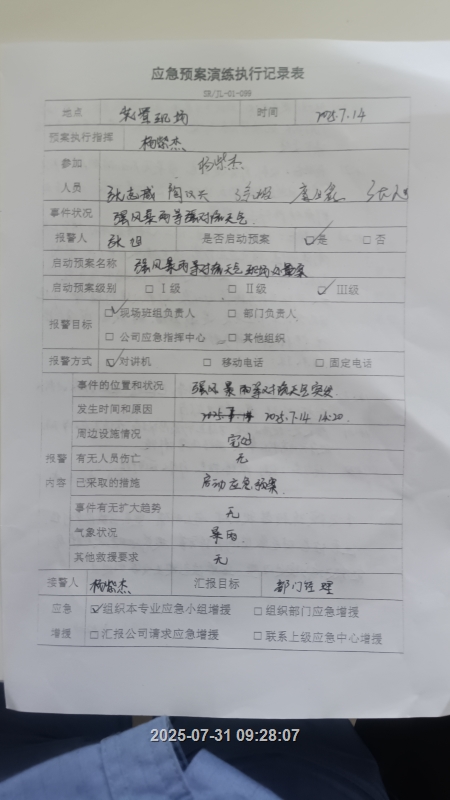 应急预案演练执行记录表
SR/JL-01-009
地点 现场 时间 2025.7.14
预案执行指挥 杨荣杰
参加人员 杨荣杰
张志威
事件状况 强风暴雨等强对流天气
报警人 张 是否启动预案 ☑是 □否
启动预案名称 强风暴雨等对流天气现场处置案
启动预案级别 □Ⅰ级 □Ⅱ级 ☑Ⅲ级
报警目标 ☑现场班组负责人 □部门负责人
□公司应急指挥中心 □其他组织
报警方式 ☑对讲机 □移动电话 □固定电话
报警内容 事件的位置和状况 强风暴雨等对流天气突发
发生时间和原因 2025.7.14 14:20
周边设施情况 完好
有无人员伤亡 无
已采取的措施 启动应急预案
事件有无扩大趋势 无
气象状况 暴雨
其他救援要求 无
接警人 杨荣杰 汇报目标 部门经理
应急增援 ☑组织本专业应急小组增援 □组织部门应急增援
□汇报公司请求应急增援 □联系上级应急中心增援
2025-07-31 09:28:07